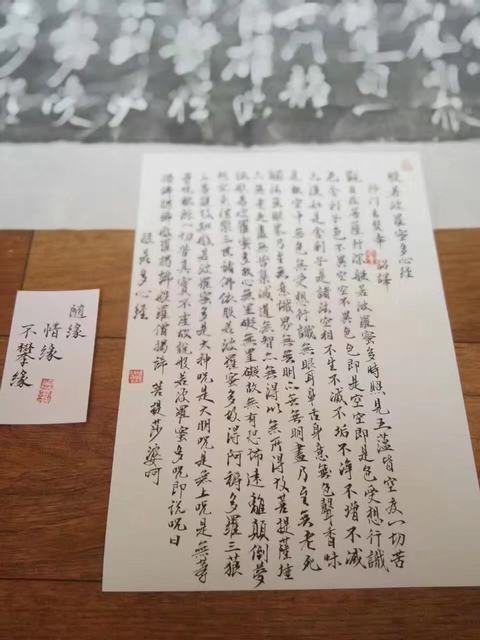 般若波羅蜜多心經
沙門玄奘奉 詔譯
觀自在菩薩行深般若波羅蜜多時照見五蘊皆空度一切苦
厄舍利子色不異空空不異色色即是空空即是色受想行識
亦復如是舍利子是諸法空相不生不滅不垢不淨不增不減
是故空中無色無受想行識無眼耳鼻舌身意無色聲香味
觸法無眼界乃至無意識界無無明亦無無明盡乃至無老死
亦無老死盡無苦集滅道無智亦無得以無所得故菩提薩埵
依般若波羅蜜多故心無罣礙無罣礙故無有恐怖遠離顛倒夢
想究竟涅槃三世諸佛依般若波羅蜜多故得阿耨多羅三藐
三菩提故知般若波羅蜜多是大神咒是大明咒是無上咒是無等
等咒能除一切苦真實不虛故說般若波羅蜜多咒即說咒曰
揭諦揭諦般羅揭諦般羅僧揭諦 菩提莎婆呵
般若多心經
隨緣
惜緣
不攀緣